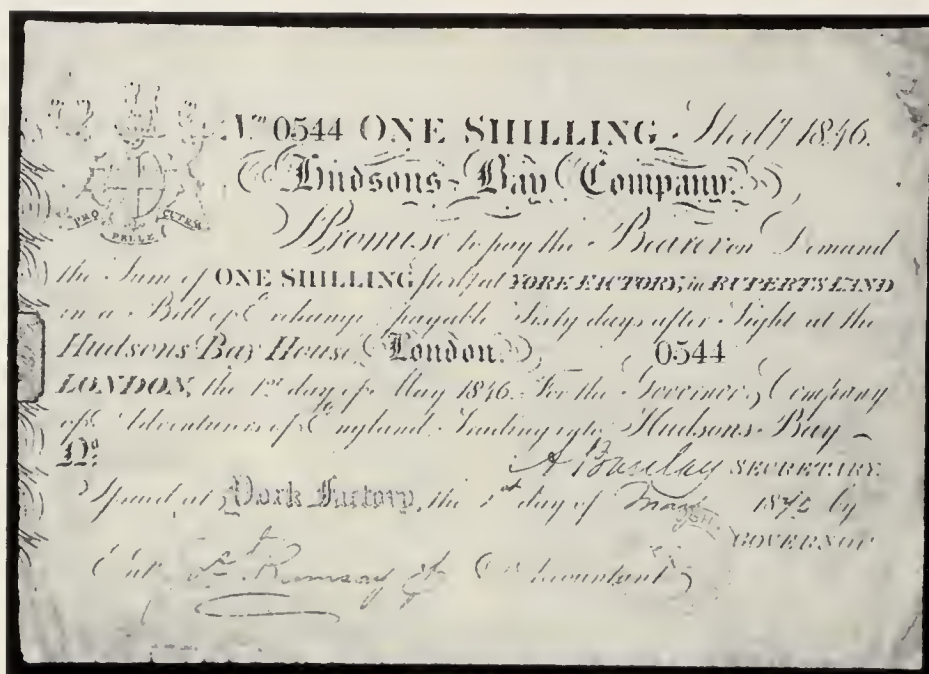 PRO PELLE CUTEM
No 0544 ONE SHILLING Sterlg 1846.
Hudsons-Bay Company.
Promise to pay the Bearer on Demand
the Sum of ONE SHILLING sterlg at YORK FACTORY, in RUPERT'S LAND
in a Bill of Exchange payable Sixty days after Sight at the
Hudsons' Bay House London. 0544
LONDON, the 1st day of May 1846. For the Governor & Company
of Adventurers of England Trading into Hudsons-Bay
A Barclay SECRETARY.
Issued at York Factory, the 1st day of 184 by
GOVERNOR
Ent Ramsay Accountant